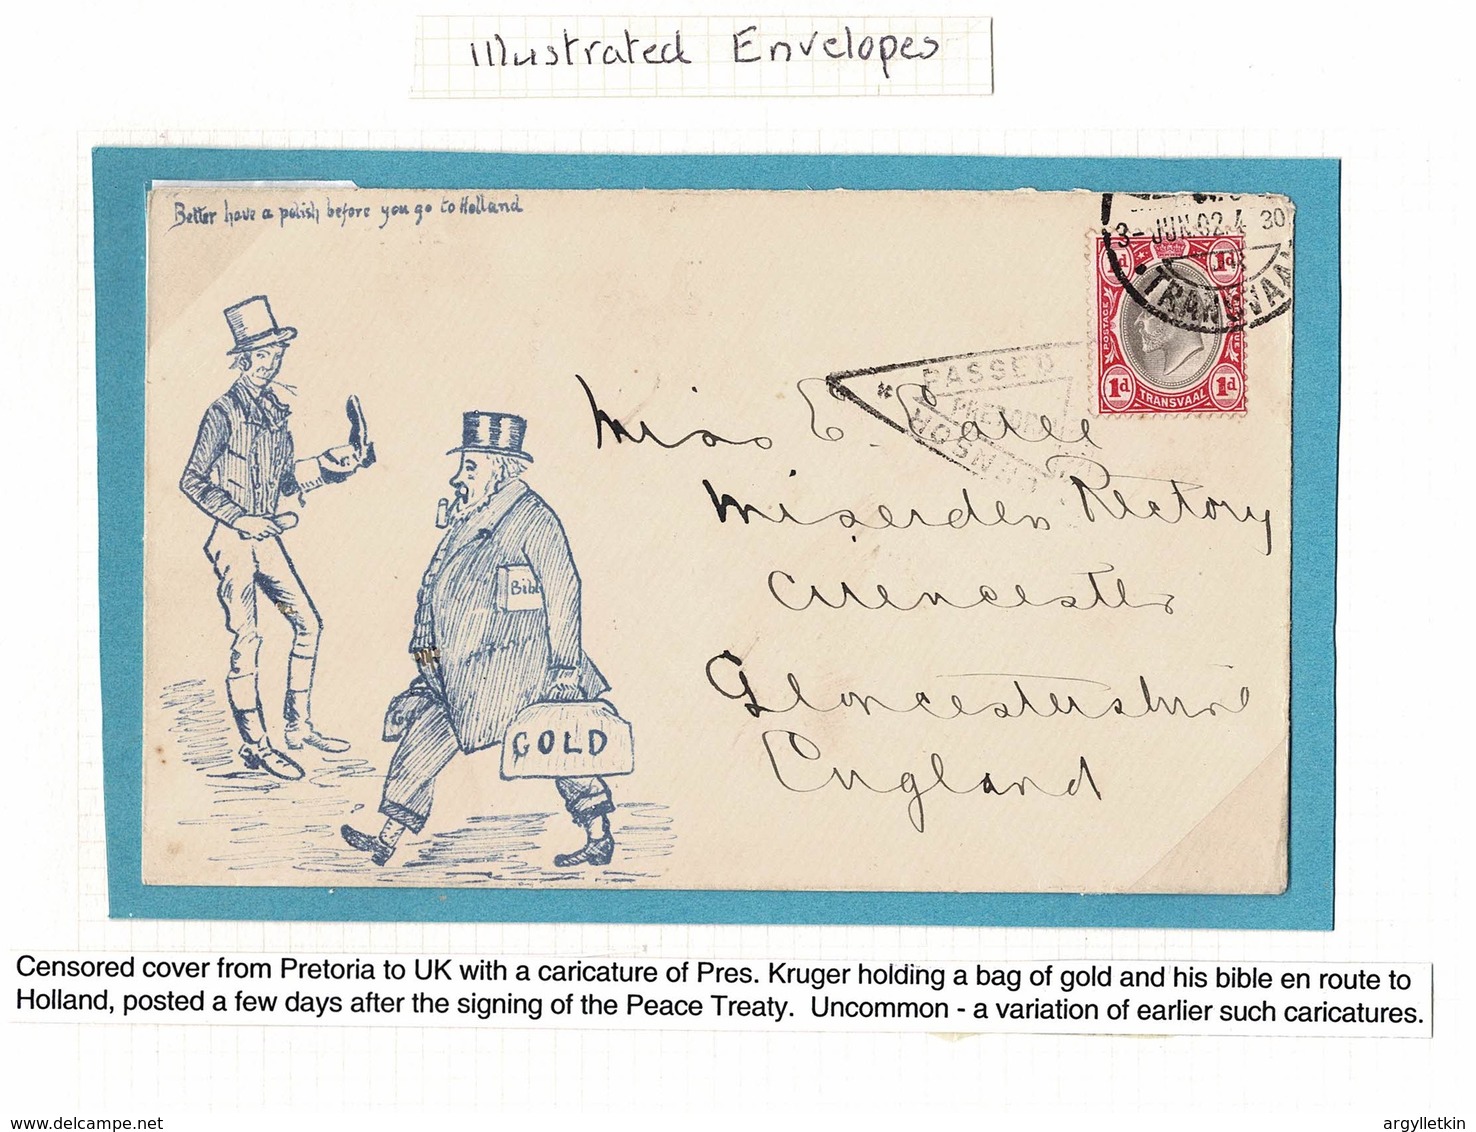 Illustrated Envelopes
Better have a polish before you go to Holland
3-JUN.02.4 30
TRANSVAAL
1d 1d
POSTAGE
1d 1d
TRANSVAAL
PASSED
PRETORIA
CENSOR
Miss E.
Miserden Rectory
Cirencester
Gloucestershire
England
Bibl
GOLD
Censored cover from Pretoria to UK with a caricature of Pres. Kruger holding a bag of gold and his bible en route to
Holland, posted a few days after the signing of the Peace Treaty. Uncommon - a variation of earlier such caricatures.
delcampe.net
argylletkin